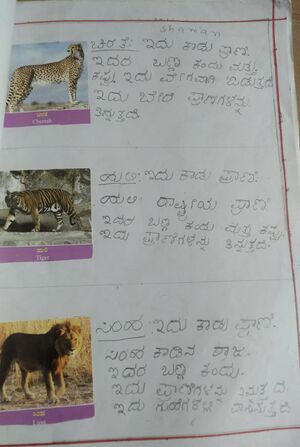 shawan
ಚಿರತೆ: ಇದು ಕಾಡು ಪ್ರಾಣಿ.
ಇದರ ಬಣ್ಣ ಕಂದು ಮತ್ತು
ಕಪ್ಪು. ಇದು ವೇಗವಾಗಿ ಓಡುತ್ತದೆ.
ಇದು ಬೇರೆ ಪ್ರಾಣಿಗಳನ್ನು
ತಿನ್ನುತ್ತದೆ.
ಚಿರತೆ
Cheetah
ಹುಲಿ: ಇದು ಕಾಡು ಪ್ರಾಣಿ.
ಹುಲಿ: ರಾಷ್ಟ್ರೀಯ ಪ್ರಾಣಿ
ಇದರ ಬಣ್ಣ ಕಂದು ಮತ್ತು ಕಪ್ಪು.
ಇದು ಪ್ರಾಣಿಗಳನ್ನು ತಿನ್ನುತ್ತದೆ.
ಹುಲಿ
Tiger
ಸಿಂಹ: ಇದು ಕಾಡು ಪ್ರಾಣಿ.
ಸಿಂಹ ಕಾಡಿನ ರಾಜ.
ಇದರ ಬಣ್ಣ ಕಂದು.
ಇದು ಪ್ರಾಣಿಗಳನ್ನು
ಇದು ಗುಹೆಗಳಲ್ಲಿ ವಾಸಿಸುತ್ತದೆ.
ಸಿಂಹ
Lion